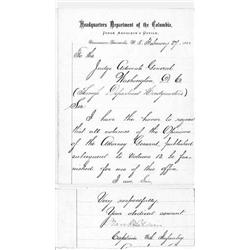 Headquarters Department of the Columbia,
Judge Advocate's Office,
Vancouver Barracks, W. T. February 27, 188
To the
Judge Advocate General
Washington D. C.
(Through Department Headquarters)
Sir:
I have the honor to request
that all volumes of the Opinions
of the Attorney General published
subsequent to Volume 13 be fur-
nished for use of this office.
I am, Sir,
Very respectfully,
Your obedient servant
Infantry